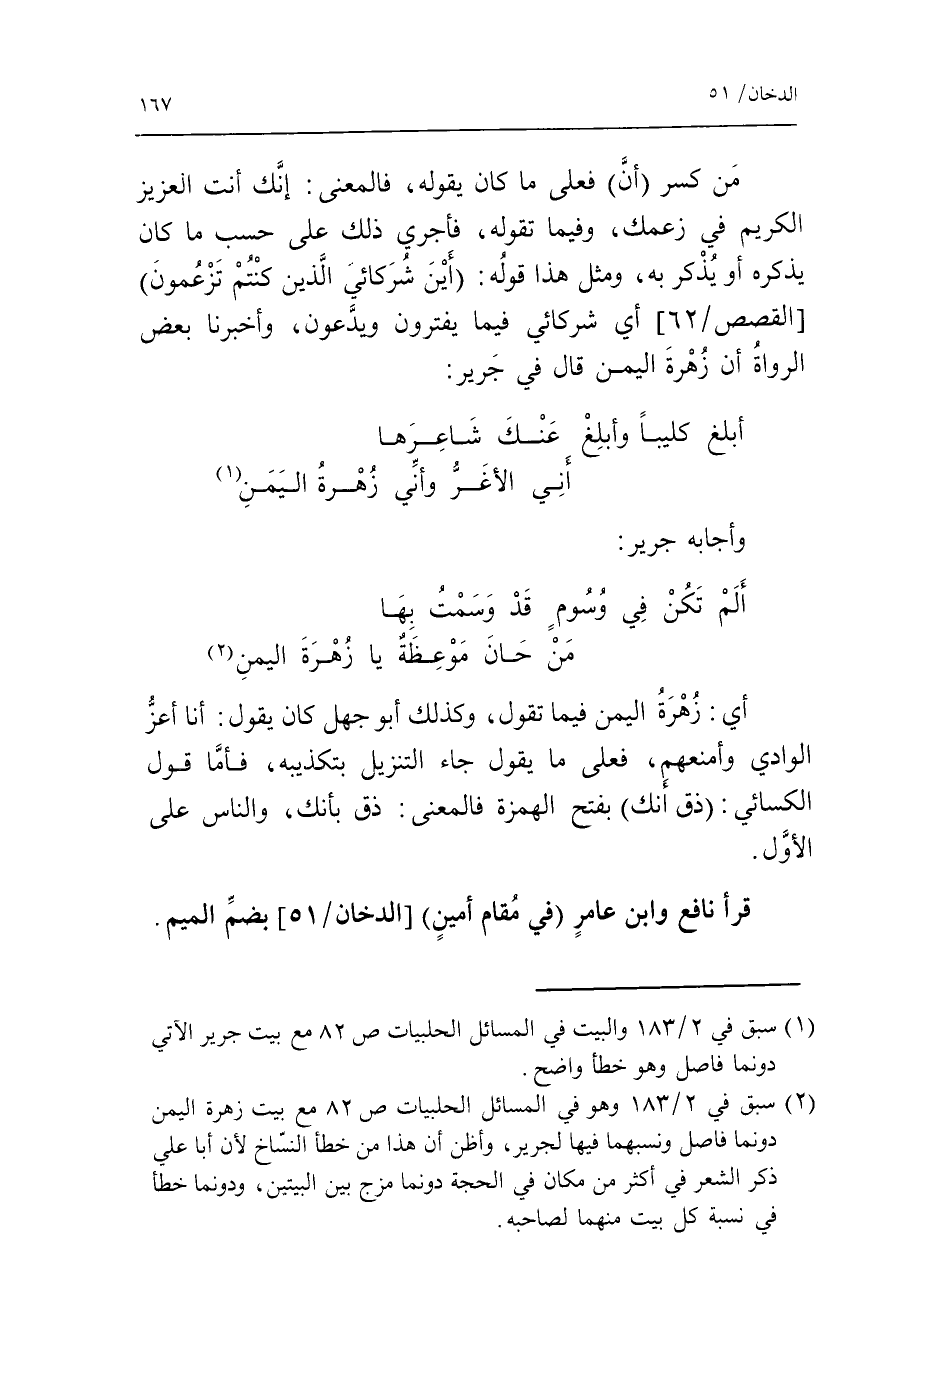 الدخان/ ٥١
١٦٧
مَن كسر (أنَّ) فعلى ما كان يقوله، فالمعنى: إنَّك أنت العزيز
الكريم في زعمك، وفيما تقوله، فأجري ذلك على حسب ما كان
يذكره أو يُذْكر به، ومثل هذا قولُه: (أَيْنَ شُرَكائيَ الَّذين كنْتُمْ تَزْعُمونَ)
[القصص/٦٢] أي شركائي فيما يفترون ويدَّعون، وأخبرنا بعض
الرواةُ أن زُهْرةَ اليمـن قال في جَرير:
أبلغ كليبـاً وأبلِغْ عَنْـكَ شَـاعِـرَهـا
أَنِـي الأغَـرُّ وأنِّي زُهْـرةُ اليَمَـنِ(١)
وأجابه جرير:
أَلَمْ تَكُنْ فِي وُسُومٍ قَدْ وَسَمْتُ بِهَـا
مَنْ حَـانَ مَوْعِـظَةٌ يا زُهْـرَةَ اليمنِ(٢)
أي: زُهْرَةُ اليمن فيما تقول، وكذلك أبو جهل كان يقول: أنا أعزُّ
الوادي وأمنعهم، فعلى ما يقول جاء التنزيل بتكذيبه، فـأمَّا قـول
الكسائي: (ذق أَنك) بفتح الهمزة فالمعنى: ذق بأنك، والناس على
الأوَّل.
قرأ نافع وابن عامرٍ (في مُقام أمينٍ) [الدخان/٥١] بضمِّ الميم.
(١) سبق في ١٨٣/٢ والبيت في المسائل الحلبيات ص ٨٢ مع بيت جرير الآتي
دونما فاصل وهو خطأ واضح.
(٢) سبق في ١٨٣/٢ وهو في المسائل الحلبيات ص ٨٢ مع بيت زهرة اليمن
دونما فاصل ونسبهما فيها لجرير، وأظن أن هذا من خطأ النسّاخ لأن أبا علي
ذكر الشعر في أكثر من مكان في الحجة دونما مزج بين البيتين، ودونما خطأ
في نسبة كل بيت منهما لصاحبه.